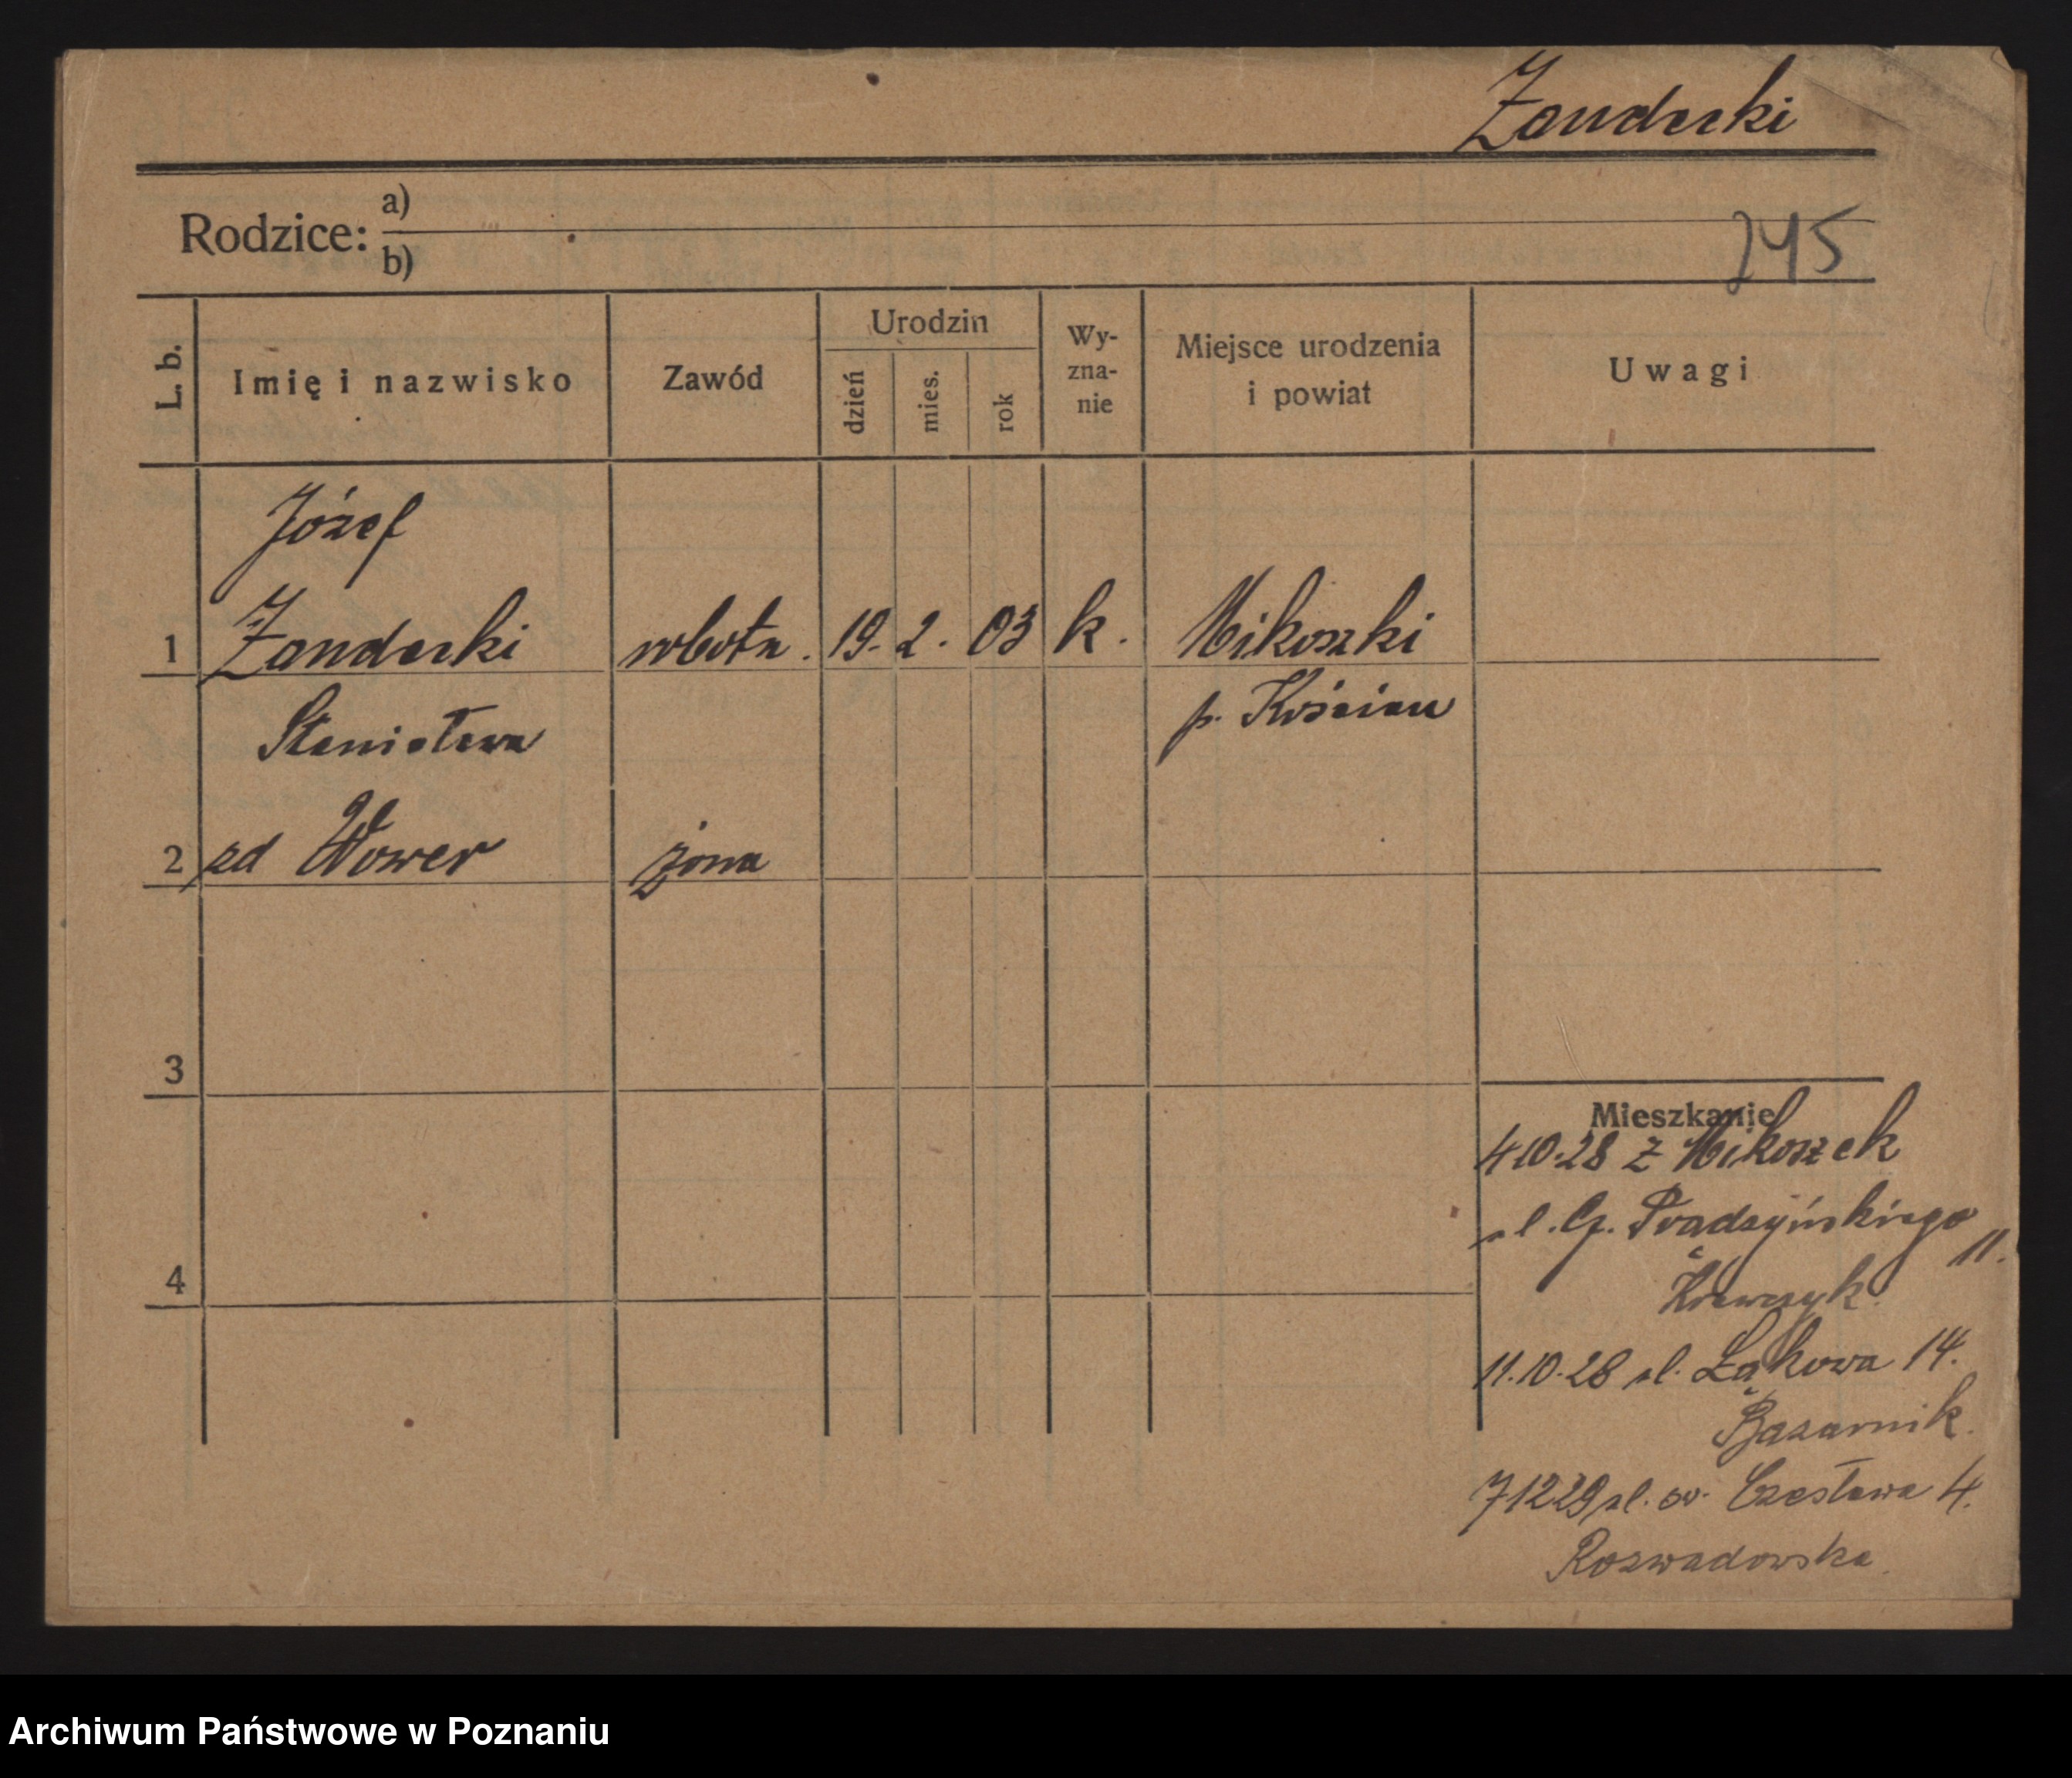 Żandecki
Rodzice: a)
b)
245
L. b.
Imię i nazwisko
Zawód
Urodzin
dzień
mies.
rok
Wy-
zna-
nie
Miejsce urodzenia
i powiat
Uwagi
Józef
1 Żandecki robotn. 19. 2. 03 k. Mikoszki
Stanisława p. Kościan
2 zd Wower żona
3
4
Mieszkanie
4 10.28 z Mikoszek
ul. G. Prądzyńskiego 11.
Krawczyk.
11.10.28 ul. Łąkowa 14.
Bazarnik.
7 12 29 ul. św. Czesława 4.
Rozwadowska.
Archiwum Państwowe w Poznaniu